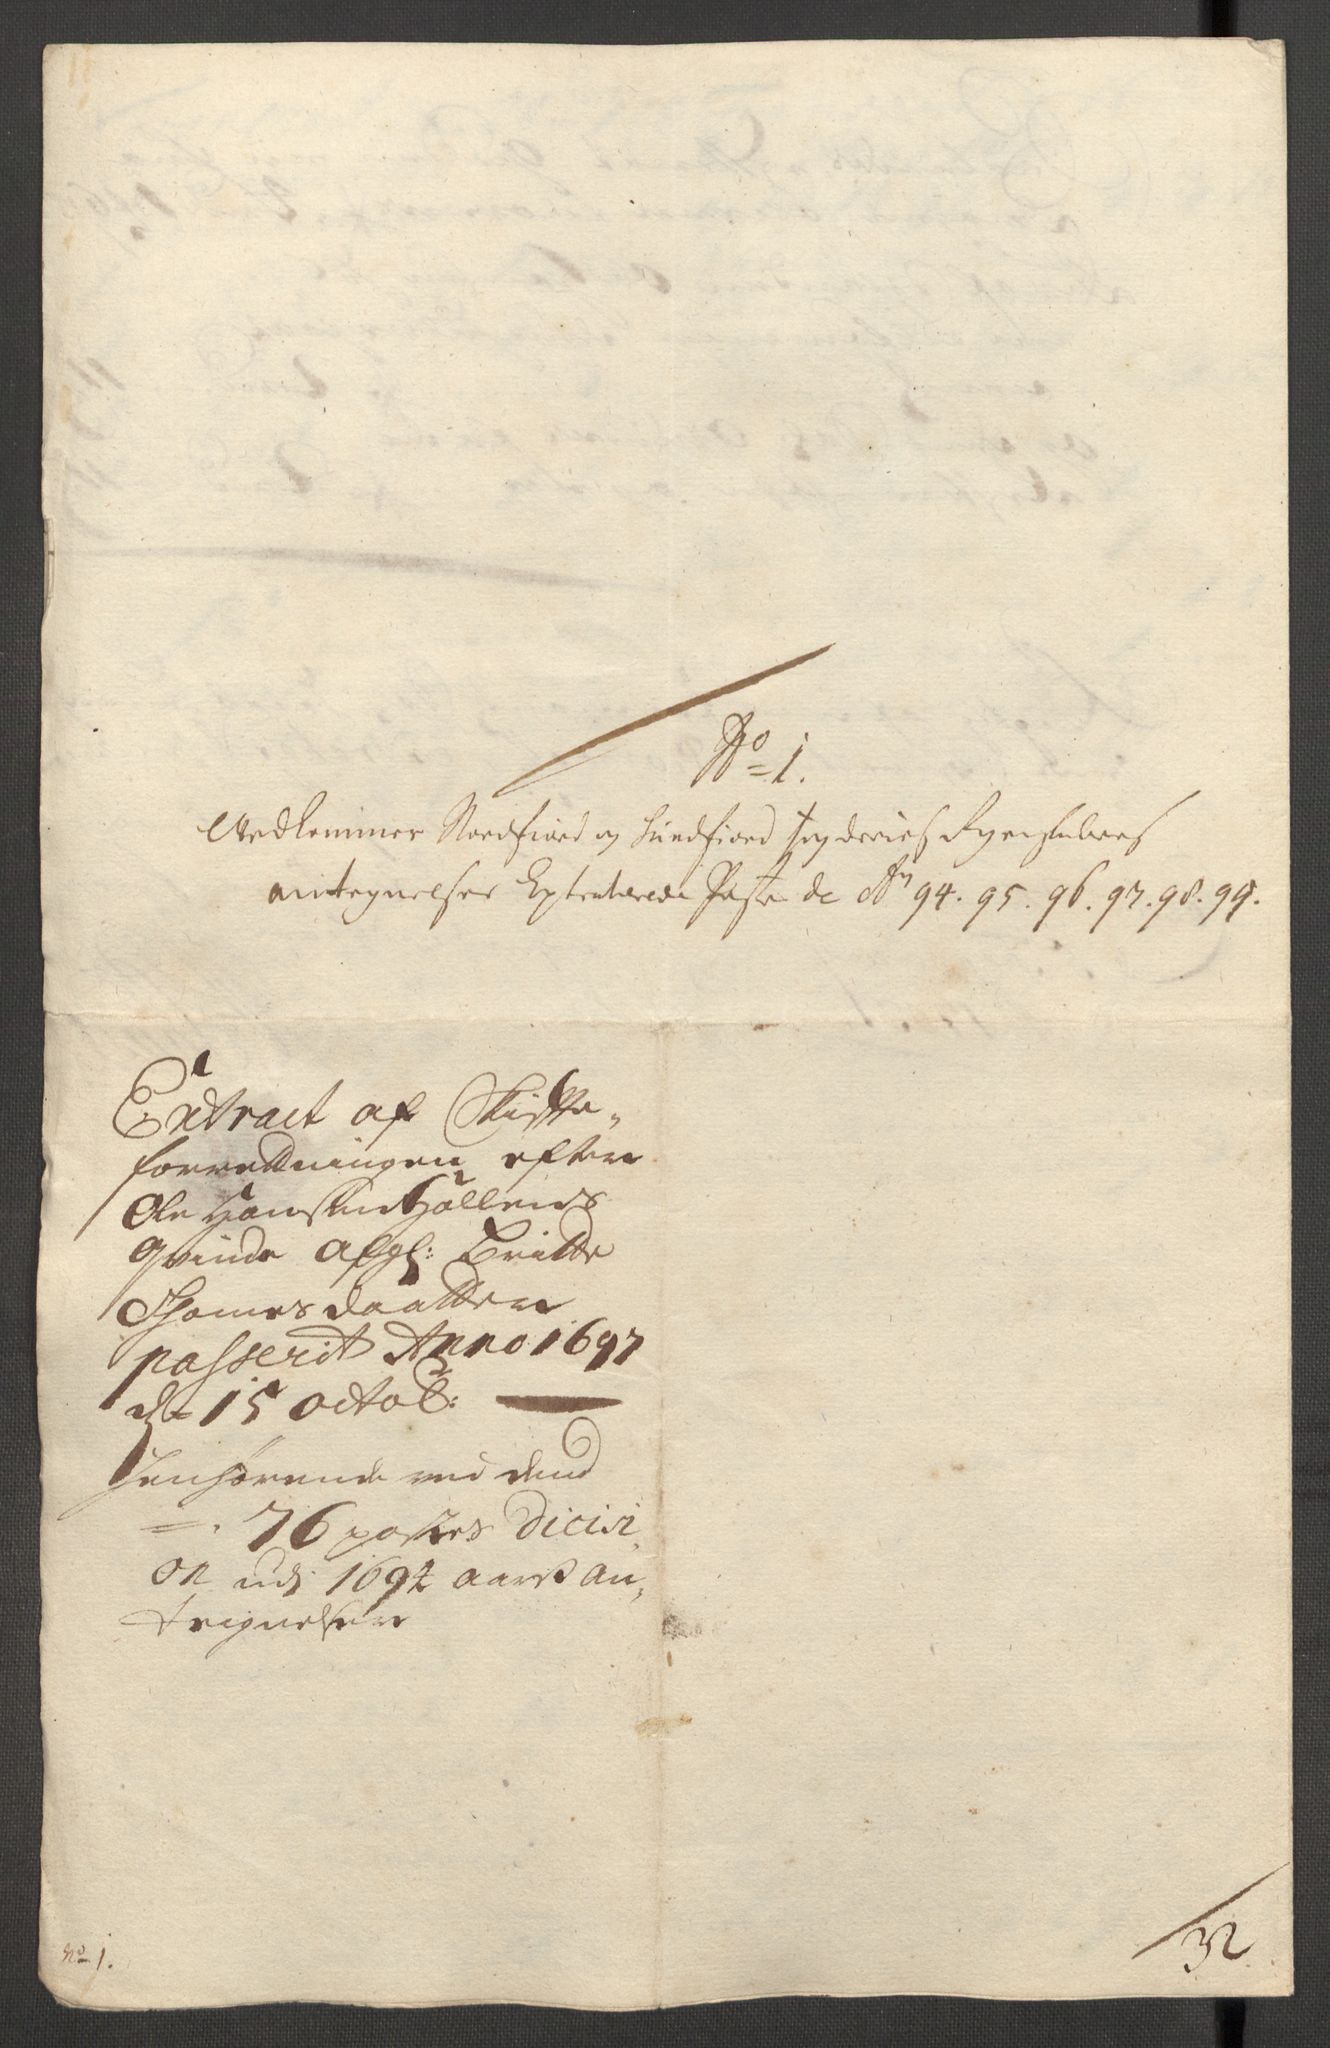 No 1.
Vedkommer Nordfiord og Sundfiord fogderies Regenskabers
antegnelser Extraherede Poster de Ao 94. 95. 96. 97. 98. 99.
Extract af Skifte-
forretningen efter
Ole Hansen Hollends
Qvinde afgl: Britte
Thomesdaatter
passerit Anno 1697
d 15 octob:
Henhørende ved dend
76 postes Dicisi-
on udj 1694 aars An-
teignelser
No 1.
32